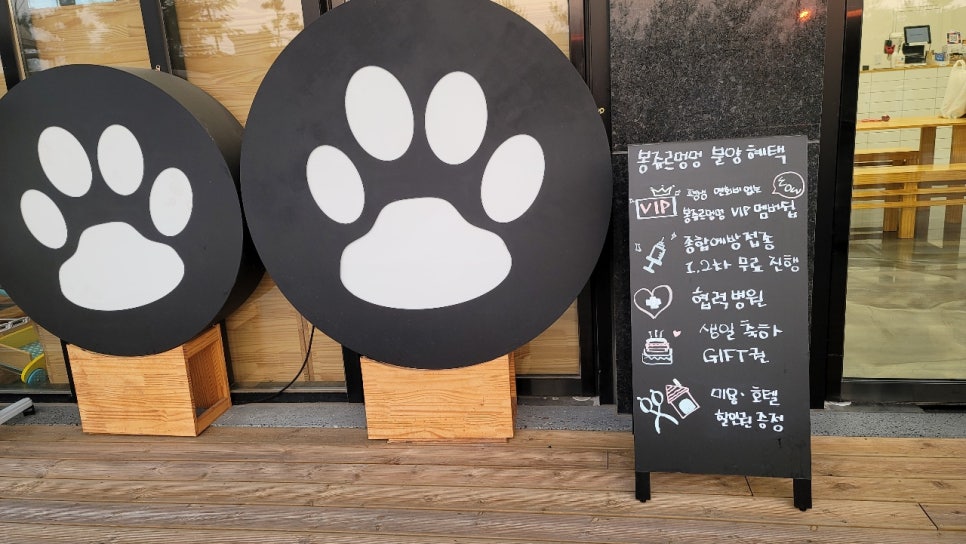 봉쥬르멍멍 분양 혜택
VIP
평생 연회비 없는
봉쥬르멍멍 VIP 멤버쉽
종합예방접종
1, 2차 무료 진행
협력병원
생일 축하
GIFT권
미용·호텔
할인권 증정